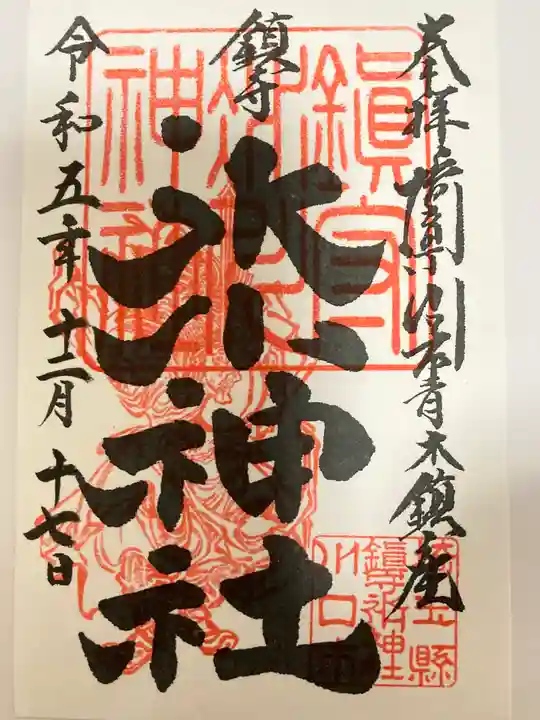 奉拝 埼玉県川口市青木鎮座
鎮守
氷川神社
令和五年十二月十七日
鎮守
氷川
神社
埼玉縣
川口市